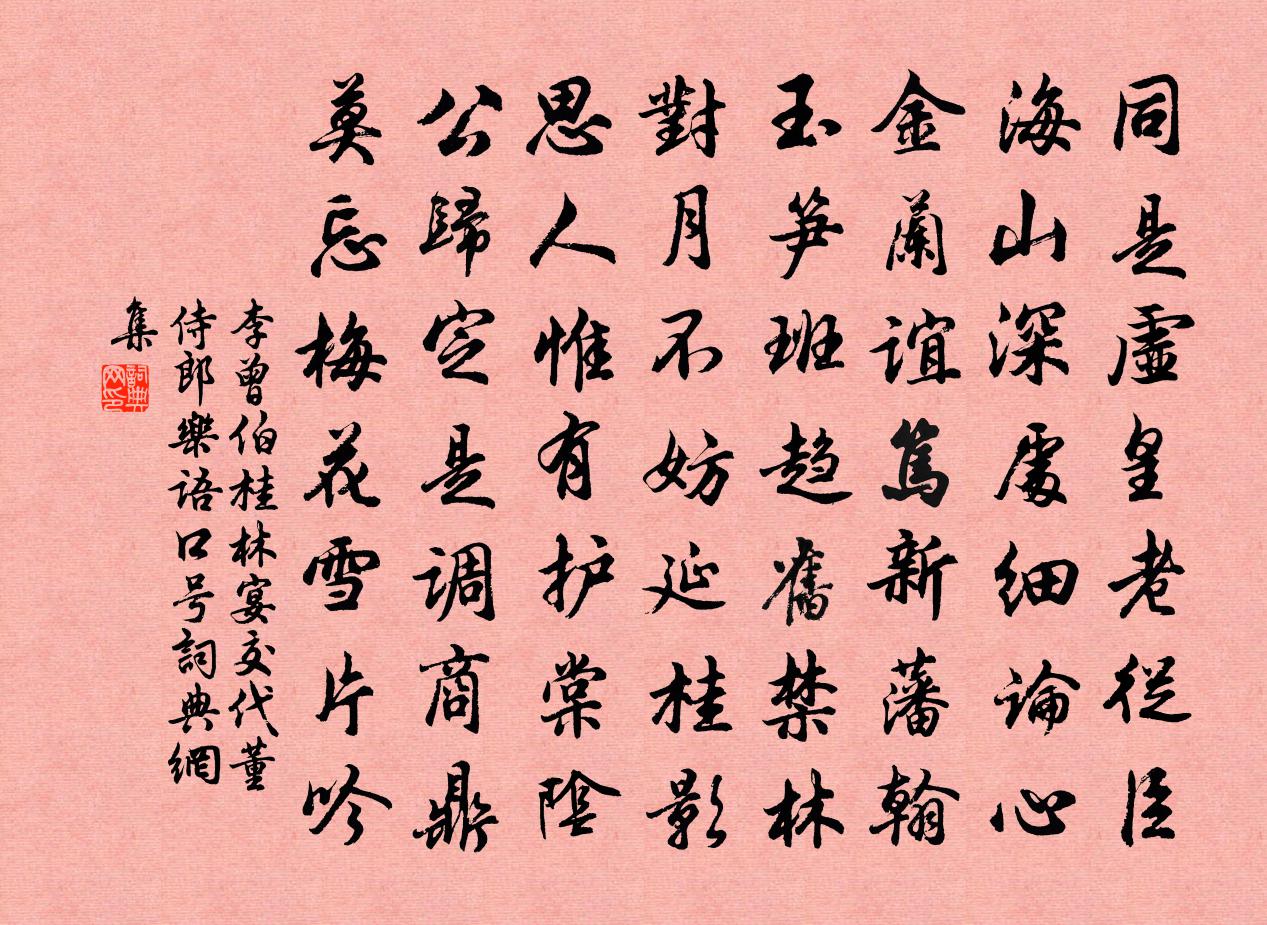 同是虛皇老從臣
海山深處細論心
金蘭誼篤新藩翰
玉笋班趋舊禁林
對月不妨延桂影
思人惟有护棠陰
公歸定是调商鼎
莫忘梅花雪片吟
李曾伯桂林宴交代董
侍郎樂語口号詞典網
集
詞典网印